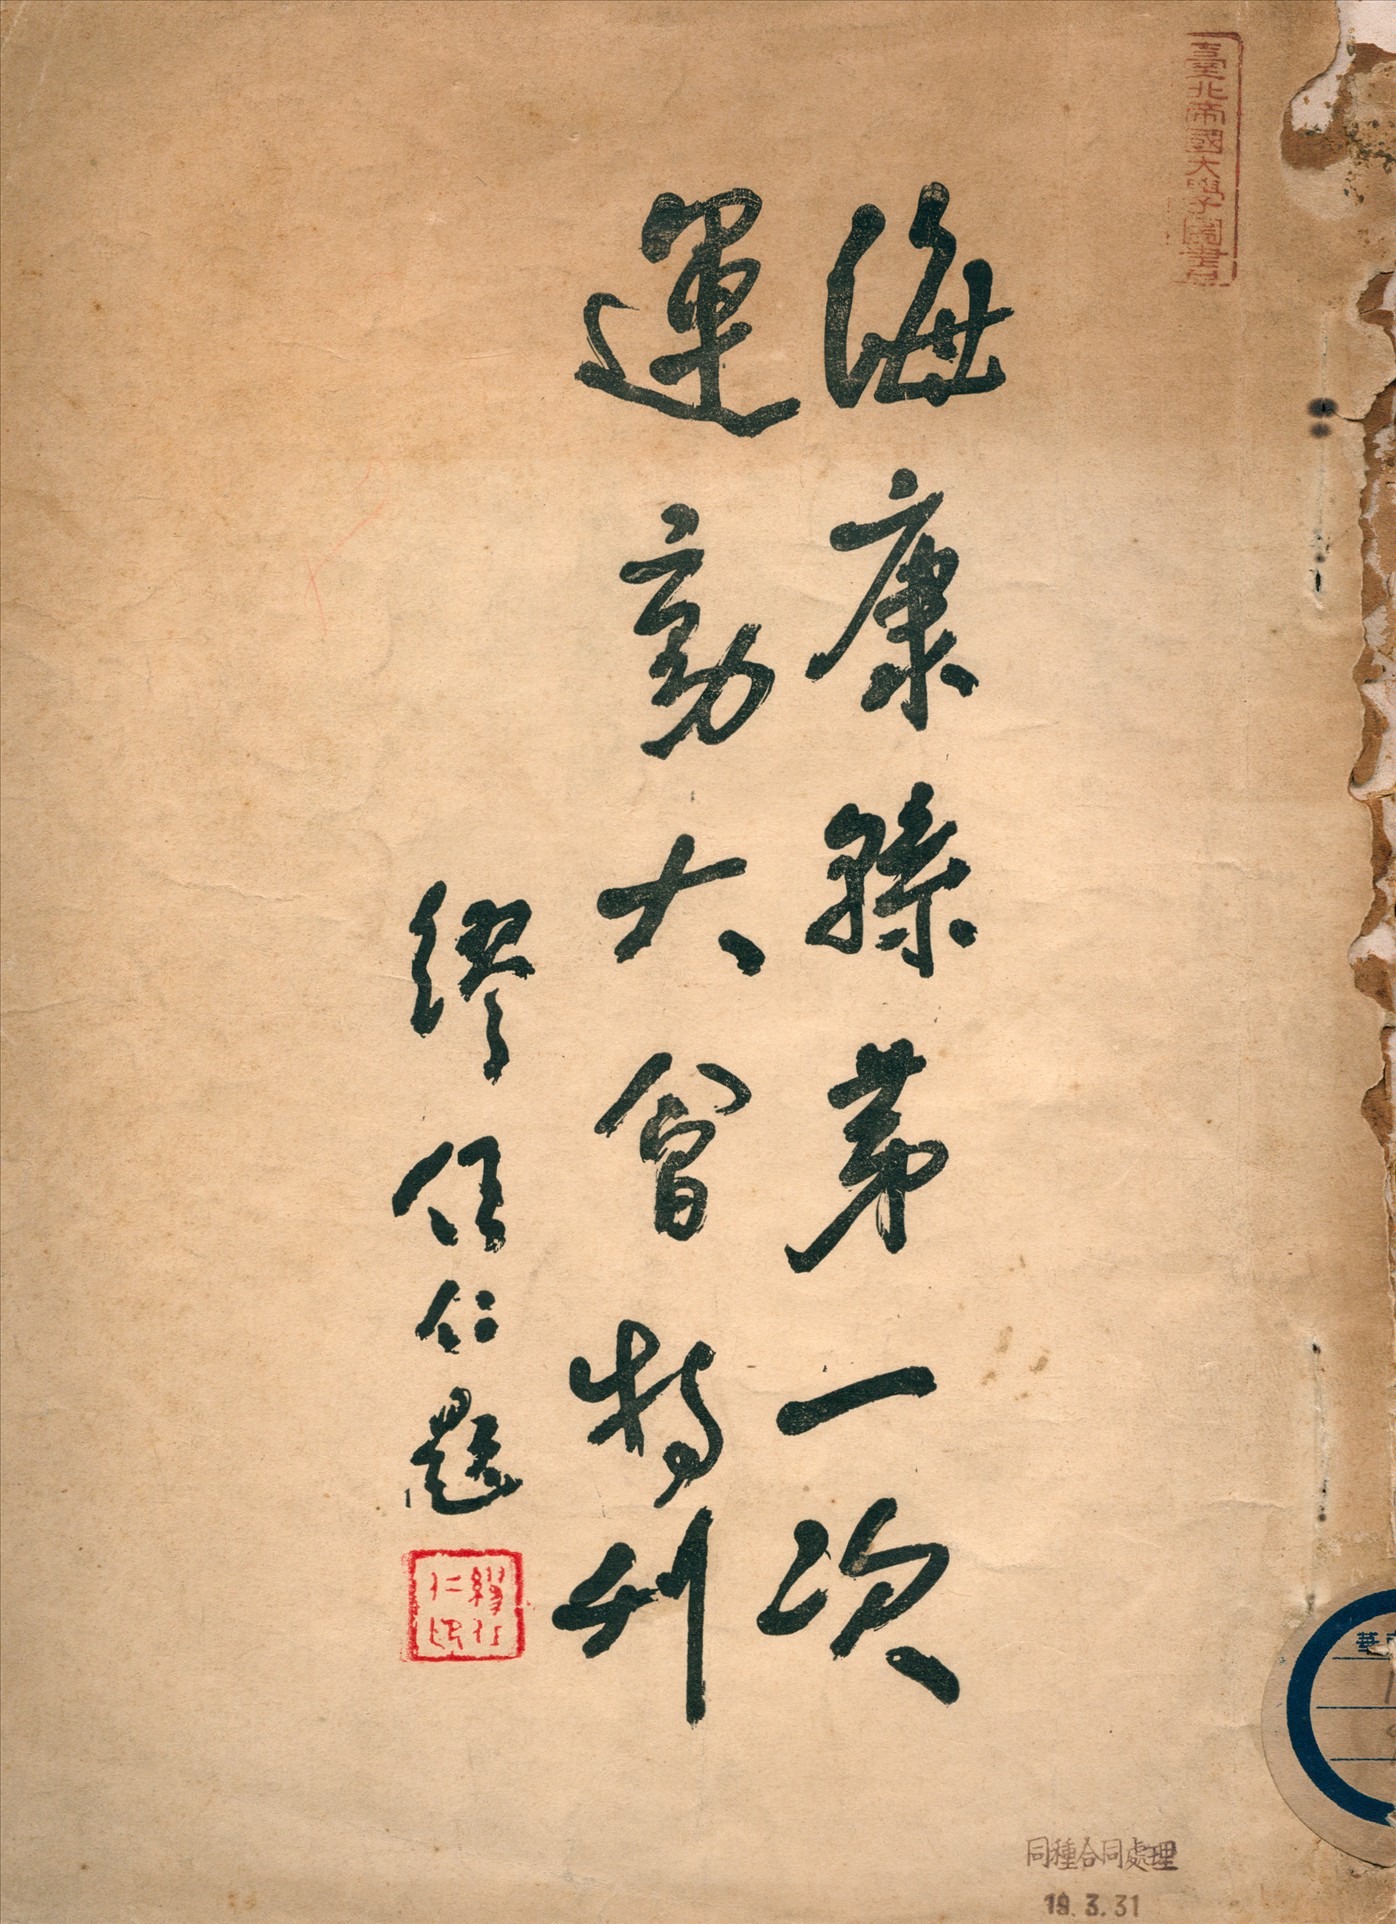 臺北帝國大學圖書印
海康縣第一次
運動大會特刊
繆任仁題
華
同種合同處理
19.3.31